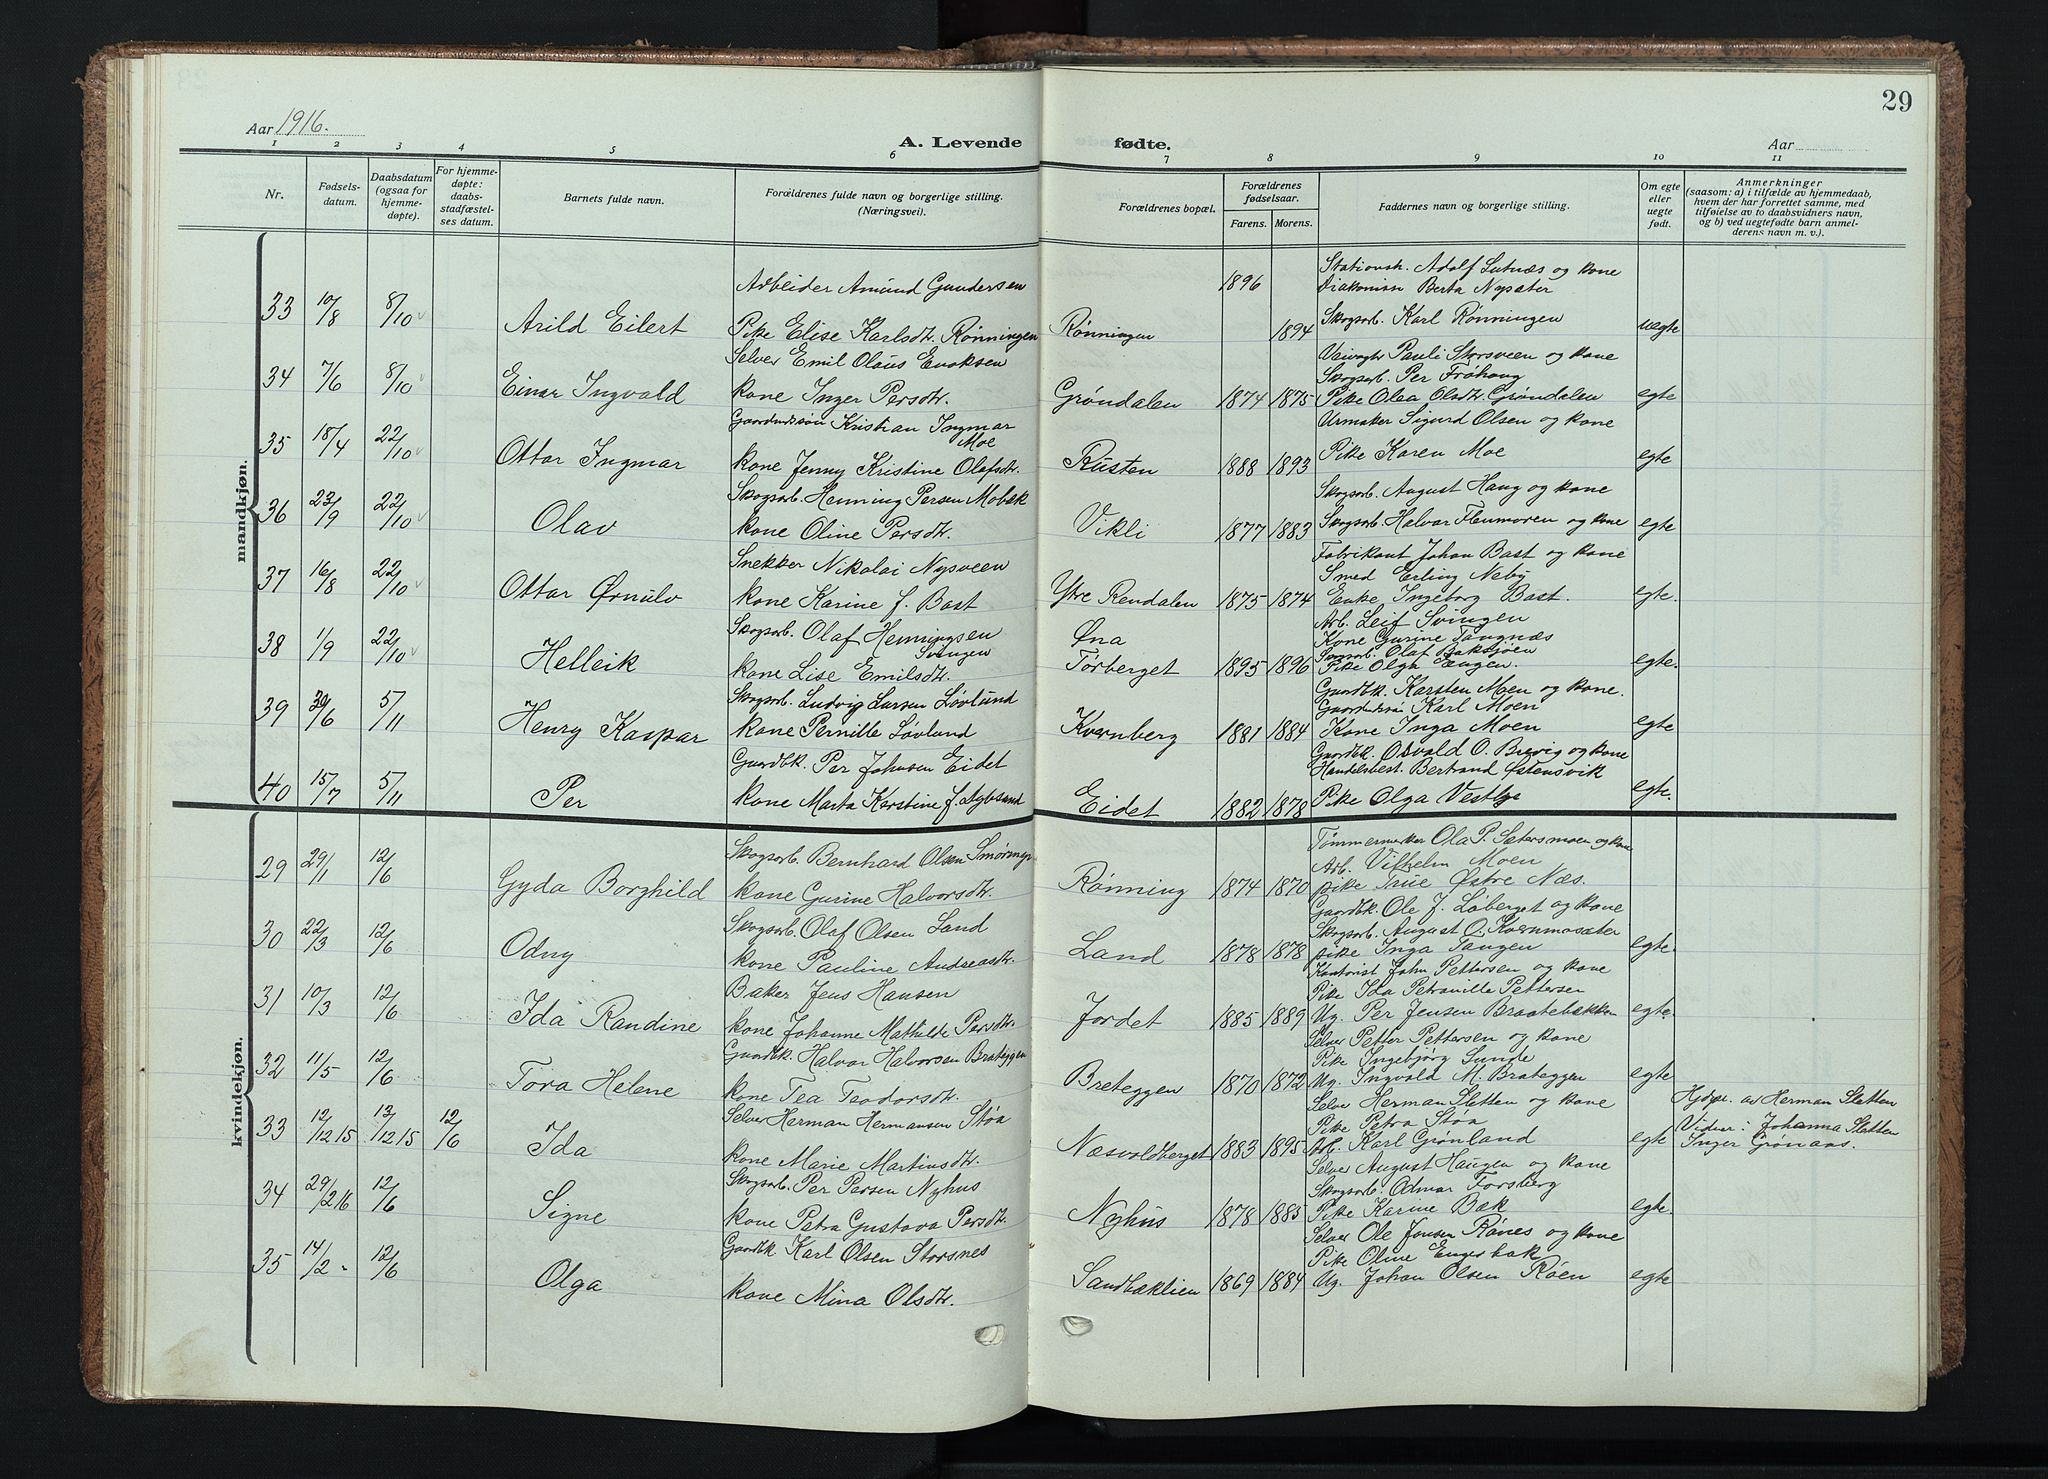 29
Aar 1916.
A. Levende fødte.
Aar
1 2 3 4 5 6 7 8 9 10 11
Nr. Fødsels-datum. Daabsdatum (ogsaa for hjemme-døpte). For hjemme-døpte: daabs-stadfæstel-ses datum. Barnets fulde navn. Forældrenes fulde navn og borgerlige stilling. (Næringsvei). Forældrenes bopæl. Forældrenes fødselsaar. Farens. Morens. Faddernes navn og borgerlige stilling. Om egte eller uegte født. Anmerkninger (saasom: a) i tilfælde av hjemmedaab, hvem der har forrettet samme, med tilføielse av to daabsvidners navn, og b) ved uegtefødte barn anmel-derens navn m. v.).
mandkjøn.
Arbeider Amund Gundersen 1896 Stationsk. Adolf Lutnæs og kone
Diakonisse Berta Nysæter
33 10/8 8/10 Arild Eilert Pike Elise Karlsdtr. Rønningen Rønningen 1894 Skogsarb. Karl Rønningen uegte
Selver Emil Olaus Enoksen Veivogter Pauli Storsveen og kone
Skogsarb. Per Frøhaug
34 7/6 8/10 Einar Ingvald kone Inger Persdtr. Grøndalen 1874 1875 Pike Olea Olsdtr. Grøndalen egte
Gaardmandssøn Kristian Ingmar Moe Urmaker Sigurd Olsen og kone
35 18/4 22/10 Ottar Ingmar kone Jenny Kristine Olafsdtr. Rusten 1888 1893 Pike Karen Moe egte
Skogsarb. Henning Persen Mobæk Skogsarb. August Haug og kone
36 23/9 22/10 Olav kone Oline Persdtr. Vikli 1877 1883 Skogsarb. Halvar Flenmoren og kone egte
Snekker Nikolai Nysveen Fabrikant Johan Bast og kone
Smed Erling Neby
37 16/8 22/10 Ottar Ørnulv kone Karine f. Bast Ytre Rendalen 1875 1874 Enke Ingeborg Bast. egte.
Skogsarb. Olaf Henningsen Svingen Øna Arb. Leif Svingen
Kone Gurine Tangnæs
Olaf Baksjøen
38 1/9 22/10 Helleik kone Lise Emilsdtr. Tørberget 1895 1896 Pike Olga Engen. egte.
Skogsarb. Ludvig Larsen Løvlund Gaardbk. Karsten Moen og kone.
Karl Moen
39 30/6 5/11 Henry Kaspar kone Pernille Løvlund Kvernberg 1881 1884 Kone Inga Moen egte
Gaardbk. Per Johnsen Eidet Gaardbk. Osvald O. Brevig og kone
Handelsbest. Bertrand Østensvik
40 15/7 5/11 Per kone Marta Kerstine f. Nybesand Eidet 1882 1878 Pike Olga Vestby egte.
kvindekjøn.
Skogsarb. Bernhard Olsen Tømmermerker Ola P. Sætersmoen og kone
Arb. Vilhelm Moen
29 29/1 12/6 Gyda Borghild kone Gurine Halvorsdtr. Rønning 1874 1870 pike True Østre Næs. egte
Skogsarb. Olaf Olsen Land Gaardbk. Ole J. Løberget og kone
Skogsarb. August O. Kvernmosæter
30 22/3 12/6 Odny kone Pauline Andreasdtr. Land 1878 1878 pike Inga Tangen egte.
Baker Jens Hansen Kontorist John Pettersen og kone
Pike Ida Petronille Pettersen
31 10/3 12/6 Ida Randine kone Johanne Mathilde Persdtr. Jordet 1885 1889 Ug. Per Jensen Braatebækken egte.
Gaardbk. Halvar Halvorsen Brateggen Selver Petter Pettersen og kone
Pike Ingebjørg Sunde
32 11/5 12/6 Tora Helene kone Tea Teodorsdtr. Breteggen 1870 1872 Ug. Ingvald M. Brateggen egte
Selver Herman Hermansen Støa Selver Herman Sletten og kone Hjdøpt. av Herman Sletten
Pike Petra Støa Vidner: Johanna Sletten
33 12/12 15 13/12 15 12/6 Ida kone Marie Martinsdtr. Næsvoldberget 1883 1895 Arb. Karl Grønland egte Inger Grønaas.
Skogsarb. Per Persen Nyhus Selver August Haugen og kone
Skogsarb. Odmar Forsberg
34 29/2 16 12/6 Signe kone Petra Gustava Persdtr. Nyhus 1878 1885 Pike Karine Bæk egte.
Gaardbk Karl Olsen Storsnes Selver Ole Jonsen Rønes og kone
Pike Oline Engesbak
35 14/2 - 12/6 Olga kone Mina Olsdtr. Sandbæklien 1869 1884 Ug. Johan Olsen Røen egte